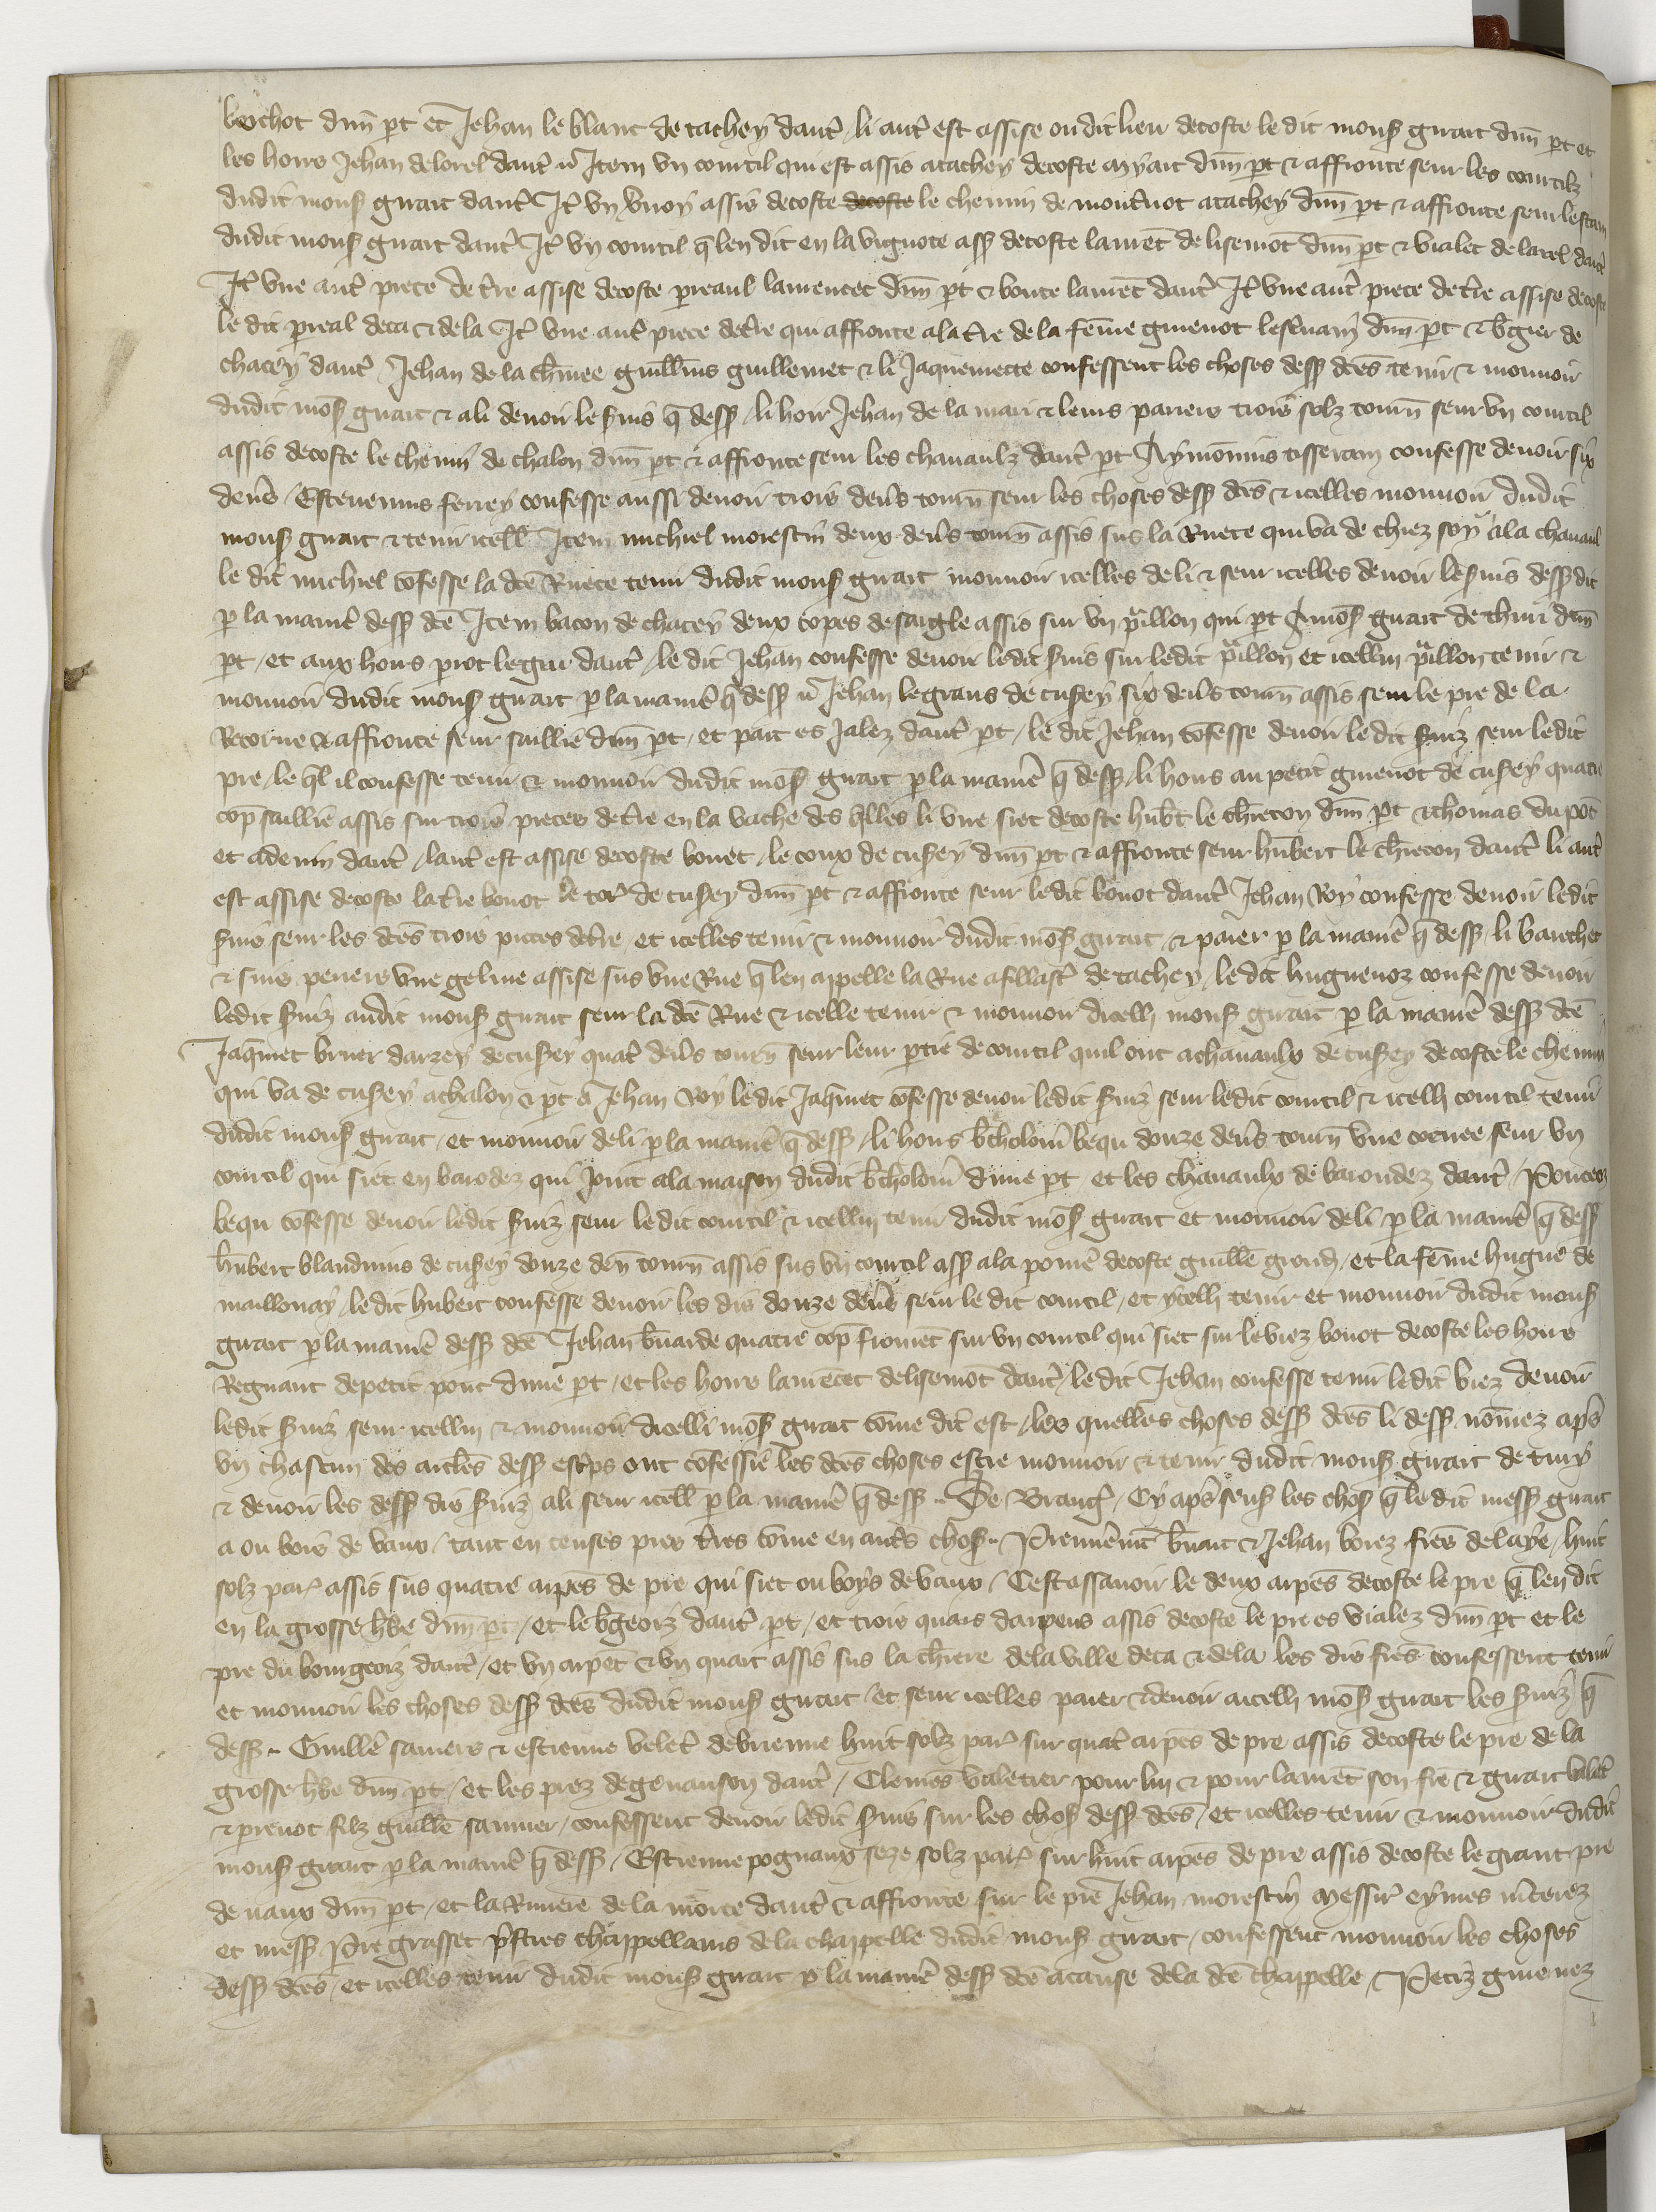 bochot dun̄ pt et Jehan le blanc de tachey dautr̄ / li autr̄ est assise ou dit lieu decoste le dit mons gṽart dun̄ pt et
les hoirs Jehan delorel dautr̄ Item vn courtil qui est assis atachey decoste dun̄ pt & affronte seur les courtilz
dudit mons gṽart dautr̄ It̄ vn assis decoste decoste le chemin de atachey dun̄ pt & affronte seur
dudit mons gṽart dautr̄ It̄ vn courtil q̄ len dit en la vignote ass decoste lamet̄ de lisemot̄ dun̄ pt & vialet de dautr̄
It̄ vne autr̄ piece de t̄re assise decoste preaul lamencet dun̄ pt & lamet̄ dautr̄ It̄ vne autr̄ piece de t̄re assise decoste
le dit preal deca & de la It̄ vne autr̄ piece de t̄re qui affronte ala t̄re de la fem̄e guienot dun̄ pt & b̄gier de
chacey dautr̄ / Jehan de la guill̄ms guillemet & li Jaquemette confessent les choses dess dc̄es tenir & mouuoir
dudit mos̄ gṽart & ali deuoir le s̄uis q̄ dess / li hoir Jehan de la mari & leurs parsers trois solz tourn̄ seur vn courtil
assis decoste le chemin de chalon dun̄ pt & affronte seur les chauaulz dautr̄ pt confesse deuoir six
den̄s / Esteuenins ferrey confesse aussi deuoir trois den̄s tourn̄ seur les choses dess dc̄es & icelles mouuoir dudit
mons gṽart & tenir icell Item michiel morestin deux den̄s tourn̄ assis sus la Ruete qui va de chiez soy ala chauaul
le dit michiel cōfesse la dc̄e Ruete tenir dudit mons gṽart mouuoir icelles de li & seur icelles deuoir le s̄uis dess dit
p la manir̄e dess dc̄e Item bacon de chacey deux copes de saigle assis sur vn p̄illon qui pt mos̄ gṽart de thuri dun̄
pt / et aux hoirs dautr̄ / le dit Jehan confesse deuoir ledit s̄uis sur ledit p̄illon et icellui p̄illon tenir &
mouuoir dudit mons gṽart p la manir̄e q̄ dess Jehan legrans de cusey six den̄s tourn̄ assis seur le pre de la
Recorne & affronte seur saillie dun̄ pt / et part es Jalez dautr̄ pt / le dit Jehan cōfesse deuoir le dit s̄uiz seur ledit
pre / le q̄l il confesse tenir & mouuoir dudit mos̄ gṽart p la manir̄e q̄ dess / li hoirs au petit guienot de cusey quatre
cop̄ saillie assis sur trois pieces de t̄re en la vache des li vne siet decoste hub̄t le dun̄ pt & thomas du pot̄
et ademin dautr̄ / lautr̄ est assise decoste bouot / le coux de cusey dun̄ pt & affronte seur hub̄ert le dautr̄ li autr̄
est assise decoste la t̄re bouot le de cusey dun̄ pt & affronte seur ledit bouot dautr̄ Jehan Roy confesse deuoir ledit
s̄uis seur les dc̄es trois pieces de t̄re / et icelles tenir & mouuoir dudit mos̄ gṽart / & paier p la manir̄e q̄ dess / li barchet
& suis vne geline assise sus vne Rue q̄ len appelle la Rue afillast̄ de tachey / le dit huguenoz confesse deuoir
ledit s̄uiz audit mons gṽart seur la dc̄e Rue & icelle tenir & mouuoir dicell mons gṽart p la manir̄e dess dc̄e
Jaq̄met bruer darzey de cusey quatr̄ den̄s tourn̄ seur leur ptie de courtil quil ont achauaulx de cusey decoste le chemin
qui va de cusey achalon & pt a Jehan Roy ledit Jaq̄met cōfesse deuoir ledit s̄uiz seur ledit courtil & icell courtil tenir
dudit mons gṽart / et mouuoir deli p la manir̄e q̄ dess / li hoirs b̄tholom̄ bequ douze den̄s tourn̄ vne cornee seur vn
courtil qui siet en barodez qui joint ala maison dudit b̄tholom̄ dune pt / et les chauaulx de barondez dautr̄ / Poncez
bequ cōfesse deuoir ledit s̄uiz seur le dit courtil & icellui tenir dudit mos̄ gṽart et mouuoir de li p la manir̄e q̄ dess
hūbert blandinins de cusey douze den̄ tourn̄ assis sus vn courtil ass ala pomir̄e decoste guill̄e / et la fem̄e hugue de
maillenay / le dit hubert confesse deuoir les dis douze den̄s seur le dit courtil / et ycell tenir et mouuoir dudit mons
gṽart p la manir̄e dess dc̄e Jehan b̄narde quatre cop̄ fromet̄ sur vn courtil qui siet sur le viez bouot decoste les hoirs
Regnaut de petit pont dune pt / et les hoirs lamēcet de lisemot̄ dautr̄ / le dit Jehan confesse tenir ledit viez deuoir
ledit s̄uiz seur icellui & mouuoir dicelli mos̄ gṽart cōme dit est / les quelles choses dess dc̄es li dess nom̄ez apr̄s
vn chascun des articl̄es dess esc̄ps ont cōfessie les dc̄es choses estre mouuoir & tenir dudit mons gṽart de tury
& deuoir les dess dis s̄uiz ali seur icell p la manir̄e q̄ dess .. De Branch / Cy apr̄s sens les chos q̄ le dit mess gṽart
a ou bois de vaux / tant en censes prez t̄res cōme en autr̄s chos .. Premir̄emt̄ b̄nart & Jehan borez frer̄s delaye / huit
solz par̄ assis sus quatre arpēs de pre qui siet ou boys de vaux / Cest assauoir le deux arpēs decoste le pre q̄ len dit
en la grosse h̄be dun̄ pt / et le b̄georz dautr̄ pt / et trois quars darpens assis decoste le pre es vialez dun̄ pt et le
pre du bourgeoiz dautr̄ / et vn arpēt & vn quart assis sus la ch̄iere de la ville deca & dela les dis frer̄s confessent tenir
et mouuoir les choses dess dc̄es dudit mons gṽart / et seur icelles paier & deuoir aicell mos̄ gṽart les s̄uiz q̄
dess .. Guill̄e sauiers & estienne velet̄ debrienne huit solz par̄ sur quatr̄ arpēs de pre assis decoste le pre de la
grosse h̄be dun̄ pt / et les prez degenauson dautr̄ / Clemēs valetier pour lui & pour lamet̄ son fre & gṽart
& preuot filz guill̄e saunier / confessent deuoir ledit s̄uis sur les chos dess dc̄es / et icelles tenir & mouuoir dudit
mons gṽart p la manir̄e q̄ dess / Estienne pognaux seze solz par̄ sur huit arpēs de pre assis decoste le grant pre
de vaux dun̄ pt / et la Riuiere de la morte dautr̄ & affronte sur le pre Jehan morestin Messir̄ eymes
et mess Pre grasset p̄stres chappellains de la chappelle dudit mons gṽart / confessent mouuoir les choses
dess dc̄es / et icelles tenir dudit mons gṽart p la manir̄e dess dc̄e acause dela dc̄e chappelle / Petiz guienez